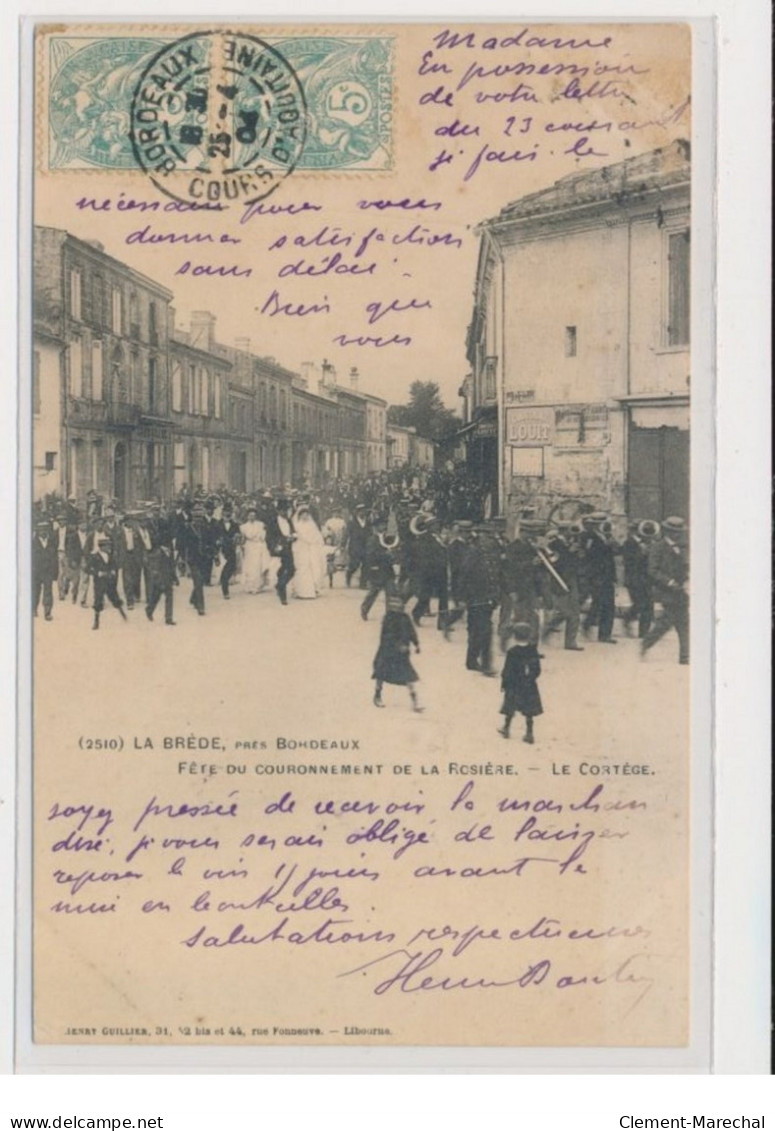 BORDEAUX
COURS D'AQUITAINE
18 30
25 - 4
04
5c
POSTES
Madame
En possession
de votre lettre
du 23 courant
je fais le
nécessaire pour vous
donner satisfaction
sans délai.
Bien que
vous
LOUIT
(2510) LA BRÈDE, PRÈS BORDEAUX
FÊTE DU COURONNEMENT DE LA ROSIÈRE. — LE CORTÈGE.
soyez pressée de recevoir la marchan
dise, je vous serais obligé de laisser
reposer le vin jours avant le
mise en bouteilles.
Salutations respectueuses
Henri
HENRY GUILLIER, 31, 42 bis et 44, rue Fonneuve. — Libourne.
Clement-Marechal